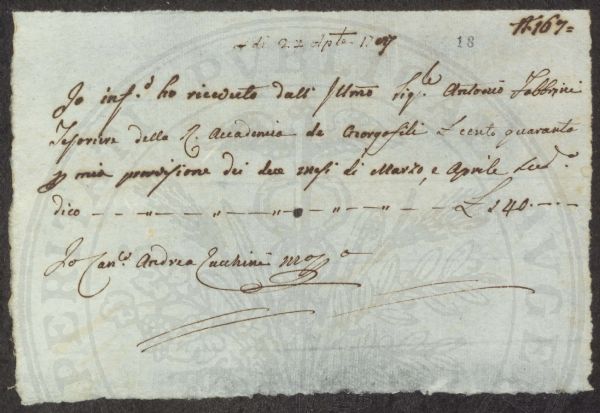 N. 167=
A dì 22 Aple 1787
18
Io info. ho ricevuto dall' Illmo Sig.le Antonio Fabbrini
Tesoriere della R. Accademia de Georgofili £ cento quaranta
p mia provisione dei due mesi di Marzo, e Aprile
dico — — „ — „ — „ — „ — — £ 140.—.—
Io Can.co Andrea Zucchini mo. pa.